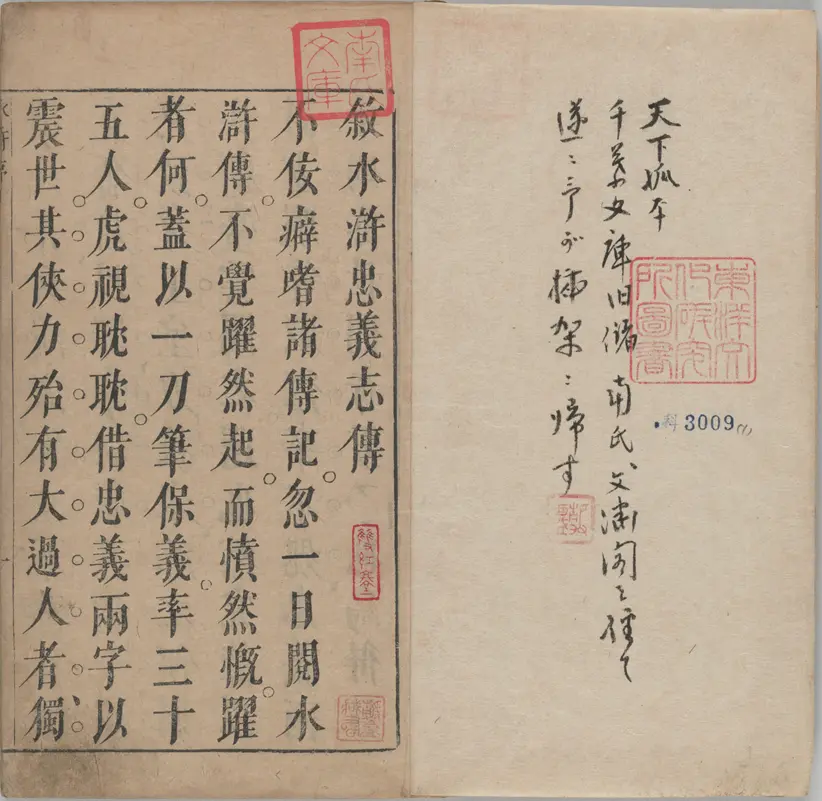 天下孤本
千葉文庫旧儲 南氏文
東洋文
化研究
所圖書
科 3009
南氏
文庫
敘水滸忠義志傳
不佞癖嗜諸傳記忽一日閱水
滸傳不覺躍然起而憤然慨躍
者何蓋以一刀筆保義率三十
五人虎視耽耽借忠義兩字以
震世其俠力殆有大過人者獨
雙紅堂